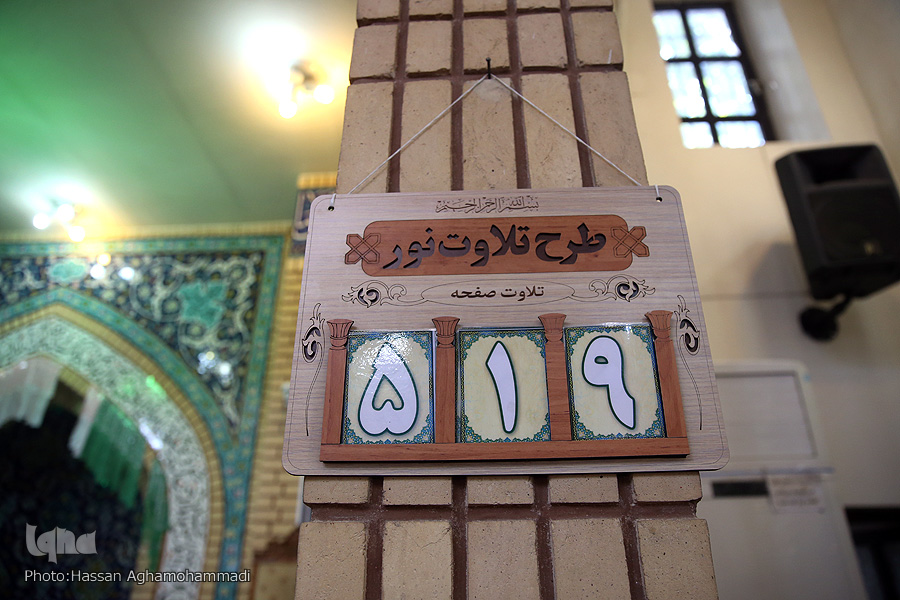 بسم الله الرحمن الرحیم
طرح تلاوت نور
تلاوت صفحه
۵۱۹
Iqna
Photo:Hassan Aghamohammadi